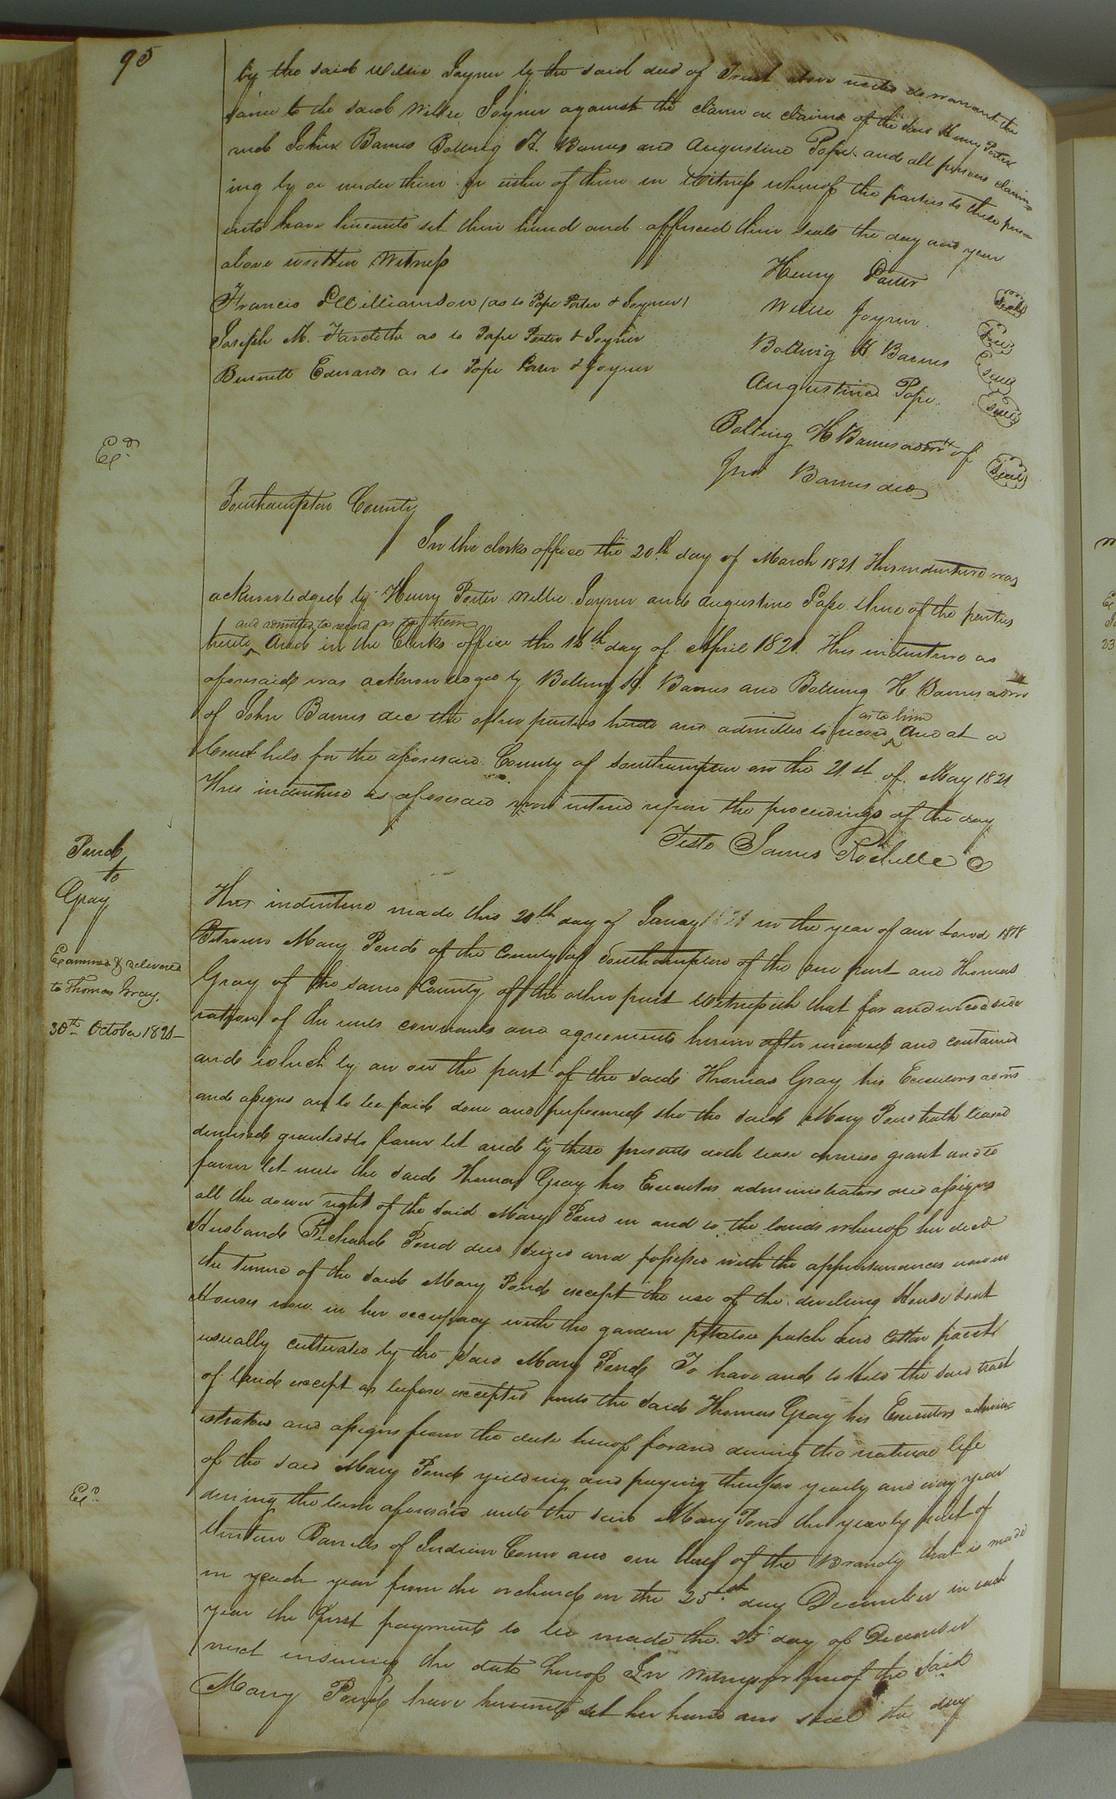 95
by the said Willie Joyner by the said deed of Trust above recited do warrant the
same to the said Willie Joyner against the claim or claims of the said Henry Porter
and John Barnes Bolling H. Barnes and Augustine Pope and all persons claim
ing by or under them or either of them in Witness whereof the parties to these pres
ents have hereunto set their hand and affixed their seals the day and year
above written Witness
Henry Porter seal
Francis Williamson (as to Pope Porter & Joyner)
Willie Joyner seal
Joseph M. as to Pope Porter & Joyner
Bolling H Barnes seal
Bennett Edwards as to Pope Porter & Joyner
Augustine Pope seal
Bolling H Barnes admr of seal
Jno Barnes decd
Exd
Southampton County
In the clerks office the 20th day of March 1821 This indenture was
acknowledged by Henry Porter Willie Joyner and Augustine Pope three of the parties
and admitted to record as to them
hereto And in the Clerks office the 18th day of April 1821 This indenture as
aforesaid was acknowledged by Bolling H. Barnes and Bolling H Barnes admr
of John Barnes dec the other parties hereto and admitted to record as to him And at a
Court held for the aforesaid County of Southampton on the 21st of May 1821
This indenture as aforesaid was entered upon the proceedings of the day
Teste James Rochelle C
Pond
to
Gray
Examined & delivered
to Thomas Gray.
30th October 1821
This indenture made this 20th day of in the year of our Lord
Between Mary Pond of the County of Southampton of the one part and Thomas
Gray of the same County of the other part Witnesseth that for and in conside
ration of the rents covenants and agreements herein after and contained
and which by an on the part of the said Thomas Gray his Executors admrs
and assigns are to be paid done and performed she the said Mary Pond hath leased
demised granted & to farm let and by these presents doth lease demise grant and to
farm let unto the said Thomas Gray his Executors administrators and assigns
all the dower right of the said Mary Pond in and to the lands whereof her decd
Husband Richard Pond died seized and possessed with the appurtenances now in
the tenure of the said Mary Pond except the use of the dwelling House &
Houses now in her occupancy with the garden potatoe patch and cotton patch
usually cultivated by the said Mary Pond To have and to Hold the said tract
of land except as before excepted unto the said Thomas Gray his Executors admin
istrators and assigns from the date hereof for and during the natural life
of the said Mary Pond yielding and paying therefor yearly and every year
during the term aforesaid unto the said Mary Pond the yearly rent of
Exd
Barrells of Indian Corn and one half of the Brandy that is made
in each year from the orchard on the 25th day December in each
year the first payment to be made the 25 day of December
next insuing the date hereof In Witness whereof the said
Mary Pond have hereunto set her hand and seal the day